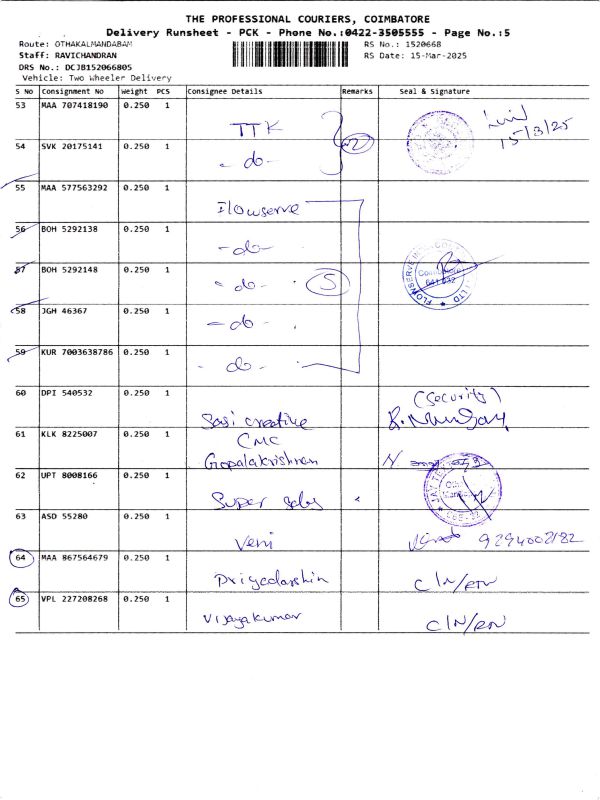 THE PROFESSIONAL COURIERS, COIMBATORE
Delivery Runsheet - PCK - Phone No.:0422-3505555 - Page No.:5
Route: OTHAKALMANDABAM
RS No.: 1520668
Staff: RAVICHANDRAN
RS Date: 15-Mar-2025
DRS No.: DCJB152066805
Vehicle: Two Wheeler Delivery
S No Consignment No Weight PCS Consignee Details Remarks Seal & Signature
53 MAA 707418190 0.250 1
TTK
15/3/25
54 SVK 20175141 0.250 1
- do -
2
55 MAA 577563292 0.250 1
Flowserve
56 BOH 5292138 0.250 1
- do -
57 BOH 5292148 0.250 1
- do -
5
58 JGH 46367 0.250 1
- do -
59 KUR 7003638786 0.250 1
- do -
60 DPI 540532 0.250 1
Sasi creative
(Security)
61 KLK 8225007 0.250 1
CMC
Gopalakrishnan
62 UPT 8008166 0.250 1
Super sales
63 ASD 55280 0.250 1
Veni
9294002182
64 MAA 867564679 0.250 1
Priyadarshin
C/N/RN
65 VPL 227208268 0.250 1
Vijayakumar
C/N/RN